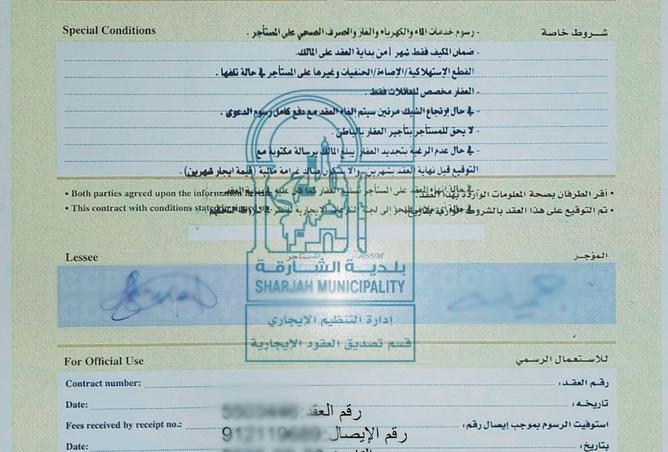 Special Conditions
شروط خاصة
- رسوم خدمات الماء والكهرباء والغاز والصرف الصحي على المستأجر .
- ضمان المكيف فقط شهر أمن بداية العقد على المالك.
القطع الإستهلاكية/الإضاءة/الحنفيات وغيرها على المستأجر في حالة تلفها .
- العقار مخصص للعائلات فقط .
- في حال إرتجاع الشيك مرتين سيتم الغاء العقد مع دفع كامل رسوم الدعوى .
- لا يحق للمستأجر بتأجير العقار بالباطن .
- في حال عدم الرغبة بتجديد العقار يبلغ المالك برسالة مكتوبة مع
التوقيع قبل نهاية العقد بشهرين، والا ستكون هناك غرامة مالية (قيمة ايجار شهرين) .
• Both parties agreed upon the information
• أقر الطرفان بصحة المعلومات الواردة بهذا العقد.
• This contract with conditions stated
• تم التوقيع على هذا العقد بالشروط الواردة بتاريخ:
Lessee
المؤجر
بلدية الشارقة
SHARJAH MUNICIPALITY
إدارة التنظيم الإيجاري
قسم تصديق العقود الإيجارية
For Official Use
للاستعمال الرسمي
Contract number:
رقم العقد:
رقم العقد:
Date:
تاريخه:
Fees received by receipt no.:
رقم الإيصال:
استوفيت الرسوم بموجب إيصال رقم:
Date:
بتاريخ: